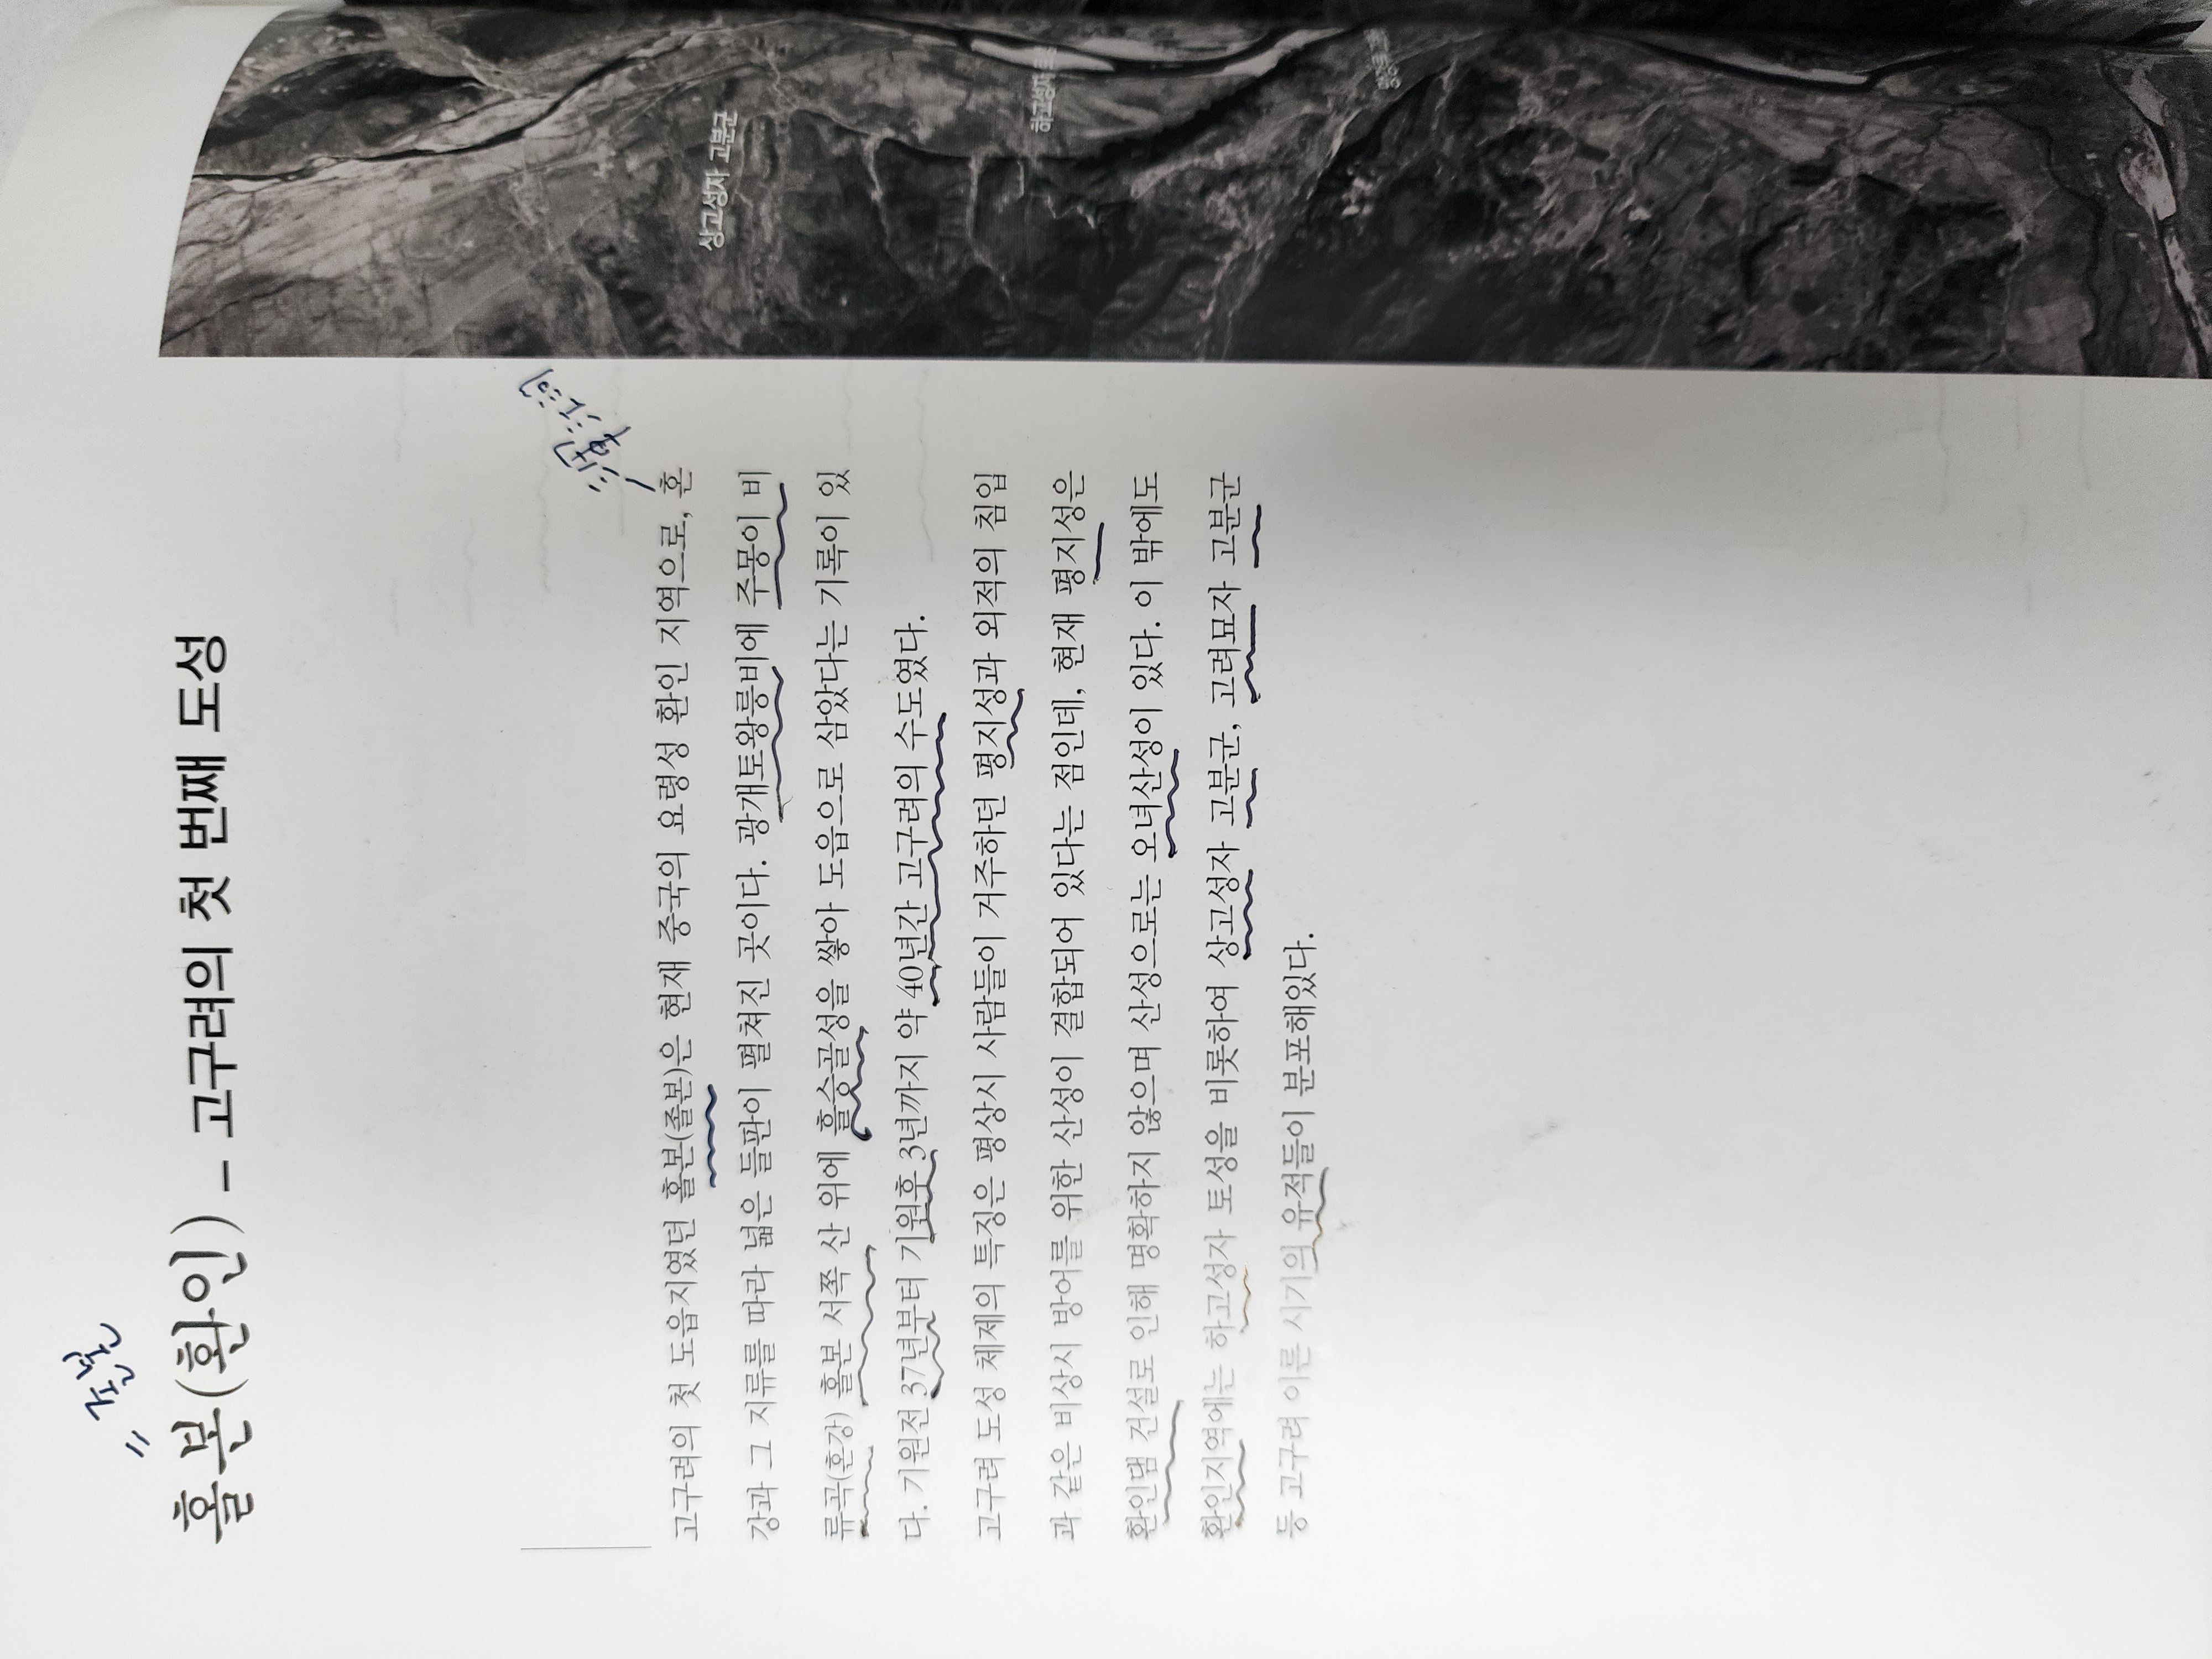 졸본
홀본(환인) – 고구려의 첫 번째 도성
고구려의 첫 도읍지였던 홀본(졸본)은 현재 중국의 요령성 환인 지역으로, 혼
강과 그 지류를 따라 넓은 들판이 펼쳐진 곳이다. 광개토왕릉비에 주몽이 비
류곡(혼강) 홀본 서쪽 산 위에 홀승골성을 쌓아 도읍으로 삼았다는 기록이 있
다. 기원전 37년부터 기원후 3년까지 약 40년간 고구려의 수도였다.
고구려 도성 체제의 특징은 평상시 사람들이 거주하던 평지성과 외적의 침입
과 같은 비상시 방어를 위한 산성이 결합되어 있다는 점인데, 현재 평지성은
환인댐 건설로 인해 명확하지 않으며 산성으로는 오녀산성이 있다. 이 밖에도
환인지역에는 하고성자 토성을 비롯하여 상고성자 고분군, 고려묘자 고분군
등 고구려 이른 시기의 유적들이 분포해있다.
상고성자 고분군
하고성자